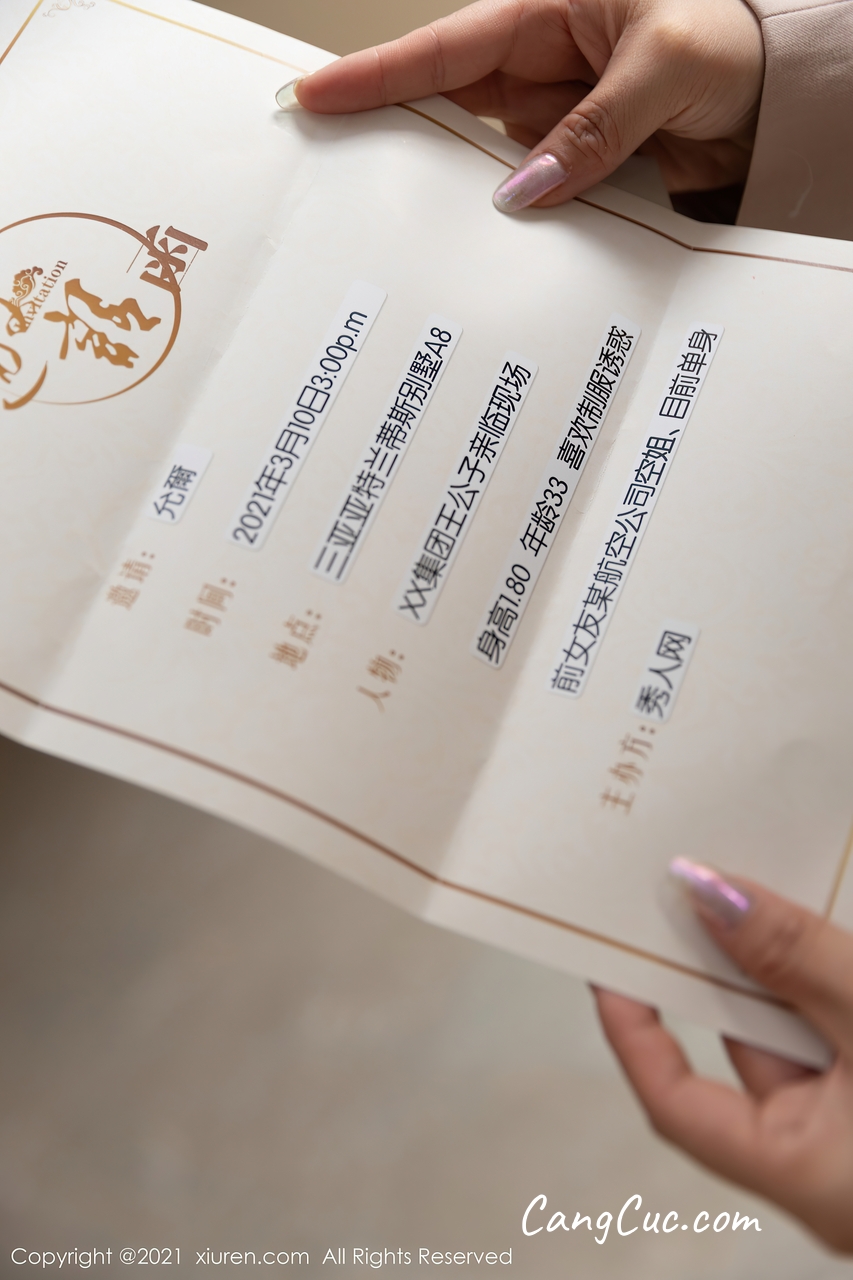 Invitation
邀请：允薾
时间：2021年3月10日3:00p.m
地点：三亚亚特兰蒂斯别墅A8
人物：XX集团王公子亲临现场
身高1.80 年龄33 喜欢制服诱惑
前女友某航空公司空姐、目前单身
主办方：秀人网
CangCuc.com
Copyright @2021 xiuren.com All Rights Reserved